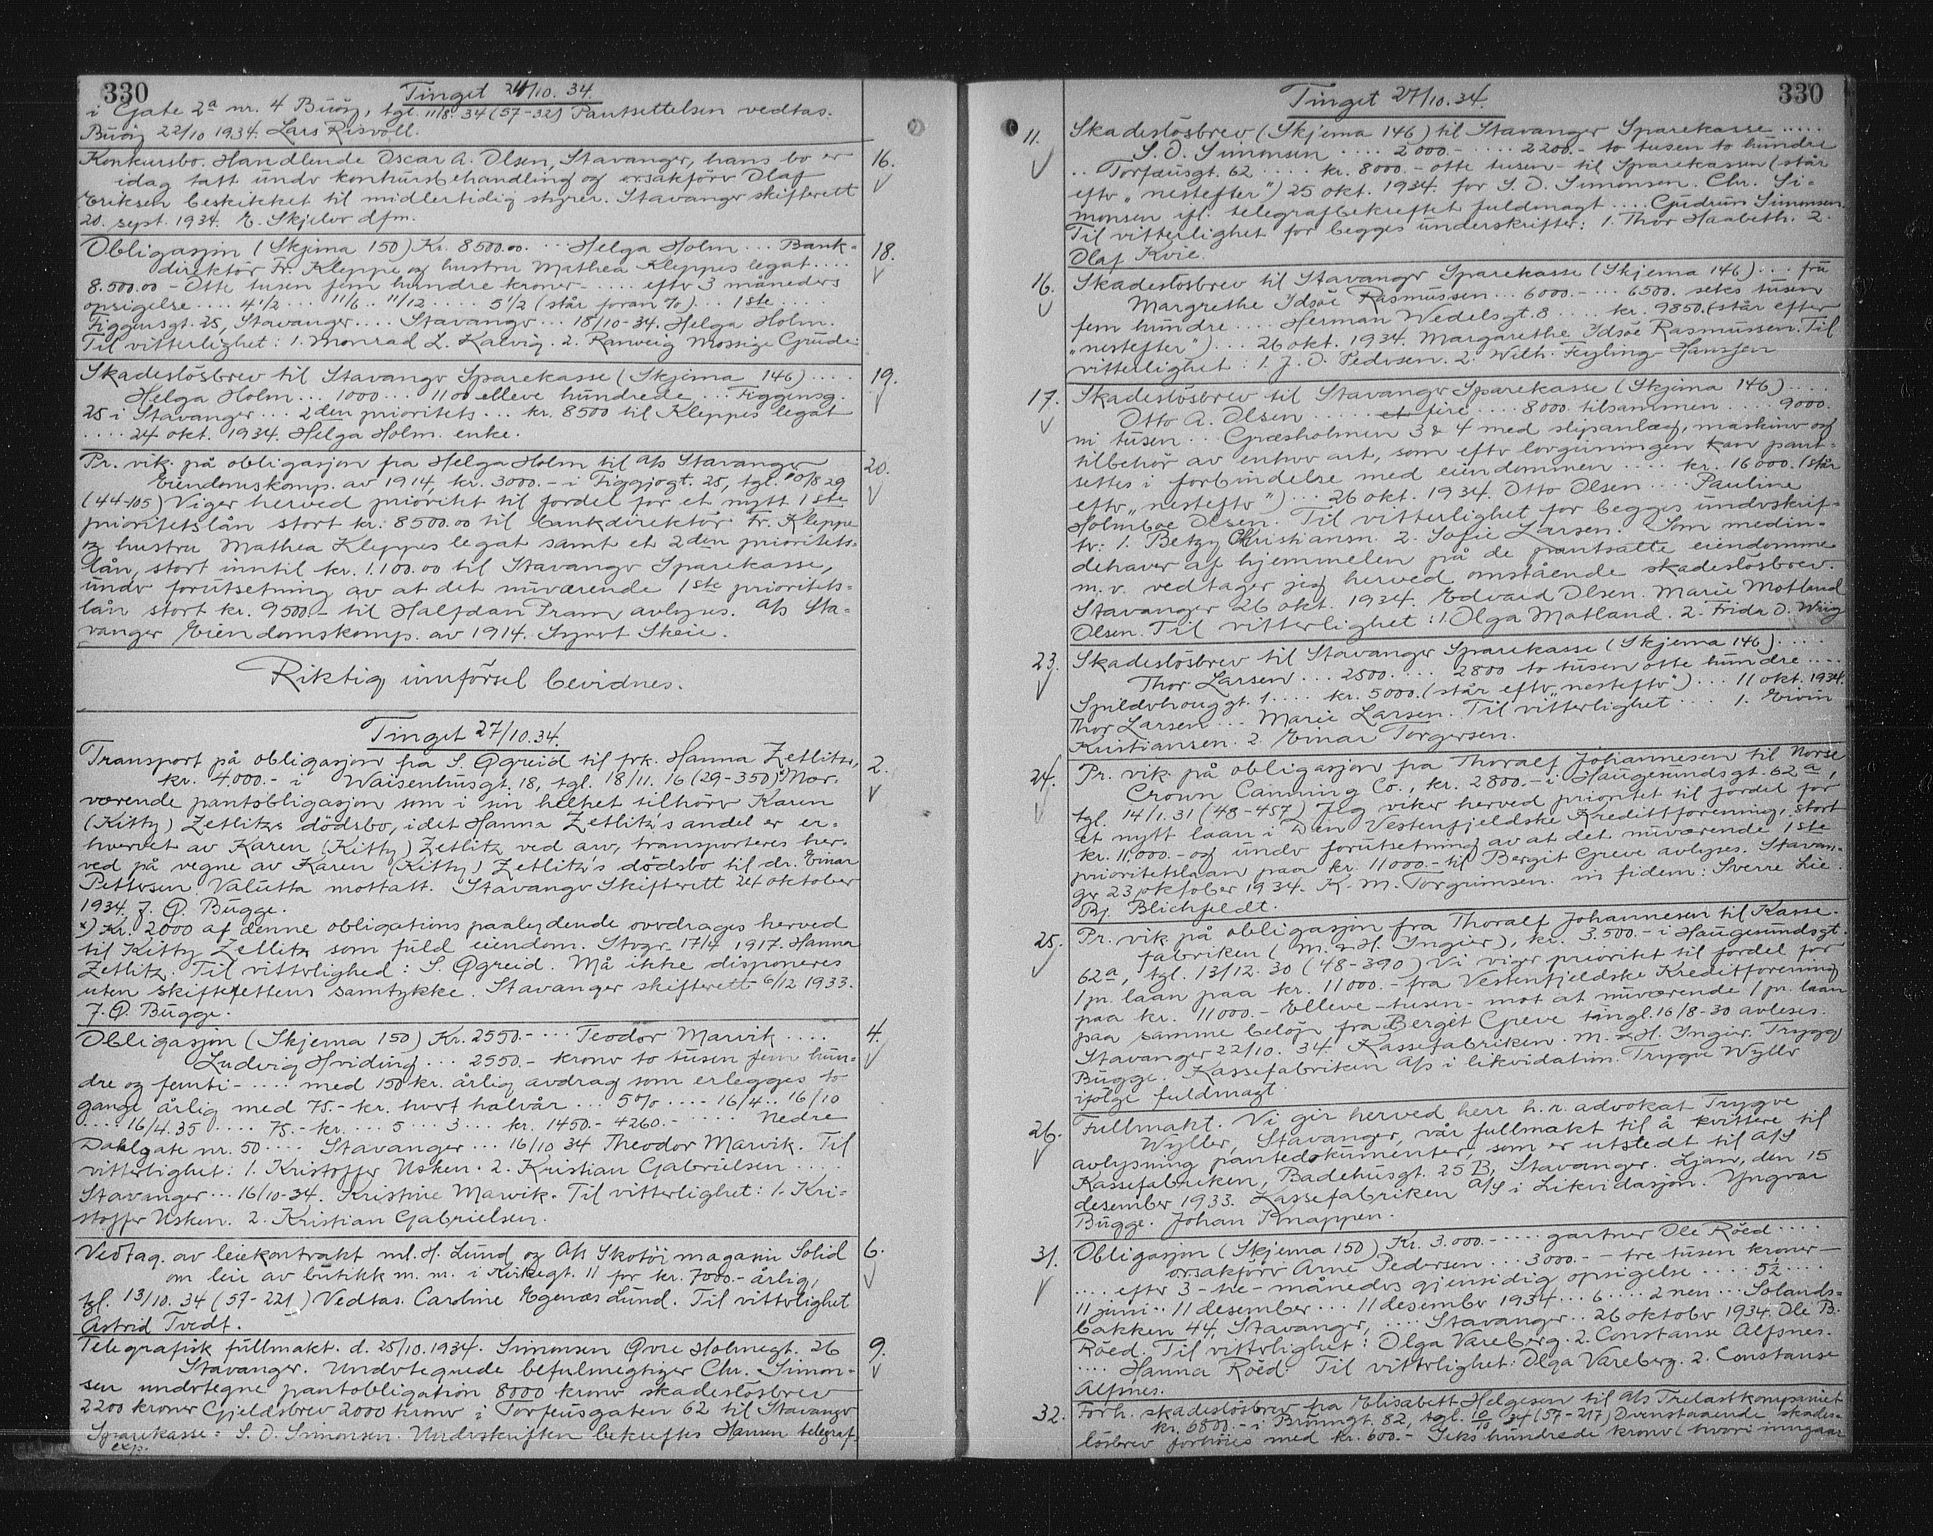 330
Tinget 24/10.34.
i Gate 2a nr. 4 Buøy, tgl. 11/8.34 (57-32) Pantsettelsen vedtas.
Buøy 22/10 1934. Lars Risvoll.
Konkursbo. Handlende Oscar A. Olsen, Stavanger, hans bo er 16.
idag tatt under konkursbehandling og orsakfører Olaf
Eriksen beskikket til midlertidig styrer. Stavanger skifterett
20. sept. 1934. E. Skjelvo dfm.
Obligasjon (Skjema 150) Kr. 8500.00 ... Helga Holm ... Bank- 18.
direktör Fr. Kleppe og hustru Mathea Kleppes legat ....
8.500.00 - Otte tusen fem hundre kroner - .... efter 3 måneders
opsigelse .... 4 1/2 ... 11/6 .. 11/12 ..... 5 1/2 (står foran %) ... 1ste ...
Figgensgt. 25, Stavanger .... Stavanger ... 18/10-34. Helga Holm.
Til vitterlighet: 1. Monrad L. Kalvig. 2. Ranveig Mossige Grude.
Skadeslösbrev til Stavanger Sparekasse (Skjema 146) .... 19.
Helga Holm ... 1000 ... 1100 elleve hundrede ... Figgensg.
25 i Stavanger ... 2den prioritets ... kr. 8500 til Kleppes legat
.... 24 okt. 1934. Helga Holm. enke.
Pr. vik. på obligasjon fra Helga Holm til A/s Stavanger 20.
Eiendomskomp. av 1914, kr. 3000.- i Figgjogt. 25, tgl. 10/8 29
(44-105) Viger herved prioritet til fordel for et nytt 1ste
prioritetslån stort kr. 8500.00 til bankdirektör Fr. Kleppe
og hustru Mathea Kleppes legat samt et 2den prioritets-
lån, stort inntil kr. 1.100.00 til Stavanger Sparekasse,
under forutsetning av at det nuværende 1ste prioritets-
lån stort kr. 9500.- til Halfdan Fram avlyses. A/s Sta-
vanger Eiendomskomp. av 1914. Syvert Skeie.
Riktig innförsel bevidnes.
Tinget 27/10.34.
Transport på obligasjon fra S. Øgreid til frk. Hanna Zetlitz, 2.
kr. 4000.- i Waisenhusgt. 18, tgl. 18/11. 16 (29-350) x) Nær-
værende pantobligasjon som i sin helhet tilhörer Karen
(Kitty) Zetlitz dödsbo, idet Hanna Zetlitz's andel er er-
hvervet av Karen (Kitty) Zetlitz ved arv, transporteres her-
ved på vegne av Karen (Kitty) Zetlitz's dödsbo til dr. Einar
Pettersen. Valutta mottatt. Stavanger Skifterett 24 oktober
1934. J. Q. Bugge.
x) Kr. 2000 af denne obligations paalydende overdrages herved
til Kitty Zetlitz som fuld eiendom. Stvgr. 17/4 1917. Hanna
Zetlitz. Til vitterlighed: S. Øgreid. Må ikke disponeres
uten skifterettens samtykke. Stavanger skifterett 6/12 1933.
J. Q. Bugge.
Obligasjon (Skjema 150) Kr. 2550.- ... Teodor Marvik .... 4.
Ludvig Hviding ... 2550.- kroner to tusen fem hun-
dre og femti- .... med 150 kr. årlig avdrag som erlegges to
gange årlig med 75.- kr. hvert halvår ... 5% .... 16/4 .. 16/10
... 16/4.35 .... 75.- kr. ... 5 ... 3 ... kr. 1450.- 4260.- ..... Nedre
Dahlgate nr. 50 .... Stavanger ... 16/10 34 Theodor Marvik. Til
vitterlighet: 1. Kristoffer Usken. 2. Kristian Gabrielsen ....
Stavanger ... 16/10-34. Kristine Marvik. Til vitterlighet: 1. Kri-
stoffer Usken. 2. Kristian Gabrielsen.
Vedtag. av leiekontrakt ml. H. Lund og A/s Skotöimagasin Solid 6.
om leie av butikk m. m. i Kirkegt. 11 for kr. 7000.- årlig,
tgl. 13/10. 34 (57-221) Vedtas. Caroline Egenæs Lund. Til vitterlighet
Astrid Tvedt.
Telegrafisk fullmakt. d. 25/10.1934. Simonsen Øvre Holmegt. 26 9.
Stavanger. Undertegnede befulmegtiger Chr. Simon-
sen undertegne pantobligation 8000 kroner skadeslösbrev
2200 kroner Gjeldsbrev 2000 kroner i Torfæusgaten 62 til Stavanger
Sparekasse = S. O. Simonsen. Underskriften bekreftes Hansen telegraf-
exp.
330
Tinget 27/10.34.
11. Skadeslösbrev (Skjema 146) til Stavanger Sparekasse .....
S. O. Simonsen .... 2000.- .... 2200.- to tusen to hundre
.. Torfæusgt. 62 .... kr. 8000.- otte tusen - til Sparekassen (står
efter "nestefter") 25 okt. 1934. for S. O. Simonsen. Chr. Si-
monsen ifl. telegrafbekreftet fuldmagt .... Gudrun Simonsen.
Til vitterlighet for begges underskrifter: 1. Thor Haabeth. 2.
Olaf Kvie.
16. Skadeslösbrev til Stavanger Sparekasse (Skjema 146) ... fru
Margrethe Idsøe Rasmussen ... 6000.- ... 6500. seks tusen
fem hundre .... Herman Wedelsgt. 8 .... kr. 9850. (står efter
"nestefter") ... 26 okt. 1934. Margarethe Idsöe Rasmussen. Til
vitterlighet: 1. J. O. Pedersen. 2. Wilh. Eyling Hanssen
17. Skadeslösbrev til Stavanger Sparekasse (Skjema 146) ....
Otto A. Olsen ..... et fire .... 8000. tilsammen .... 9000.
ni tusen ... Græsholmen 3 & 4 med slipanlæg, maskiner og
tilbehör av enhver art, som efter lovgivningen kan pant-
settes i forbindelse med eiendommen .... kr. 16000. (står
efter "nestefter") ... 26 okt. 1934. Otto Olsen .... Pauline
Holmboe Olsen. Til vitterlighet for begges underskrif-
ter: 1. Betzy Christiansen. 2. Sofie Larsen. Som medin-
dehaver af hjemmelen på de pantsatte eiendomme
m. v. vedtager jeg herved omstående skadeslösbrev.
Stavanger 26 okt. 1934. Edvard Olsen. Marie Motland
Olsen. Til vitterlighet: 1. Olga Motland. 2. Frida O. Wiig
23. Skadeslösbrev til Stavanger Sparekasse (Skjema 146) ....
Thor Larsen ... 2500. ... 2800 to tusen otte hundre ....
Spilderhouggt. 1 .... kr. 5000. (står efter "nestefter") ... 11 okt. 1934.
Thor Larsen ... Marie Larsen. Til vitterlighet .... 1. Eivin
Kristiansen. 2. Einar Torgersen.
24. Pr. vik. på obligasjon fra Thoralf Johannesen til Norse
Crown Canning Co., kr. 2800.- i Haugesundsgt. 62a,
tgl. 14/1.31 (48-457) Jeg viker herved prioritet til fordel for
et nytt laan i Den Vestenfjeldske Kredittforening, stort
kr. 11,000.- og under forutsetning av at det nuværende 1ste
prioritetslaan paa kr. 11000.- til Bergit Greve avlyses. Stavan-
ger 23 oktober 1934. K. M. Torgrimsen. in fidem: Sverre Lie.
Bj. Blichfeldt.
25. Pr. vik. på obligasjon fra Thoralf Johannesen til Kasse-
fabriken (M. & H. Yngier), kr. 3.500.- i Haugesundsgt.
62a, tgl. 13/12.30 (48-390) Vi viger prioritet til fordel for
1 pr. laan paa kr. 11000.- fra Vestenfjeldske Kreditforening
paa kr. 11000.- Elleve-tusen- mot at nuværende 1 pr. laan
paa samme belöp fra Bergét Greve tingl. 16/8-30 avleses.
Stavanger 22/10. 34. Kassefabriken. M. & H. Yngier. Trygg
Bugge. Kassefabriken A/s i likvidation. Trygve Wyller
ifölge fuldmagt
26. Fullmakt. Vi gir herved herr h.r. advokat Trygve
Wyller, Stavanger, vår fullmakt til å kvittere til
avlysning pantedokumenter, som er utstedt til A/S
Kassefabriken, Badehusgt. 25 B, Stavanger. Ljan, den 15
desember 1933. Kassefabriken A/S i Likvidasjon. Yngvar
Bugge. Johan Knappen.
31. Obligasjon (Skjema 150) Kr. 3.000.- .... gartner Ole Röed ....
orsakförer Arne Pedersen ... 3000.- - tre tusen kroner -
.... efter 3 -tre- måneders gjensidig opsigelse .... 5 1/2 ....
11 juni .. 11 desember ... 11 desember 1934 ... 6 .... 2 nen ... Solands-
bakken 44, Stavanger, .... Stavanger .. 26 oktober 1934. Ole B.
Röed. Til vitterlighet: Olga Vareberg. 2. Constanse Alfsnes.
.... Hanna Röed. Til vitterlighet: Olga Vareberg. 2. Constanse
Alfsnes.
32. Forh. skadeslösbrev fra Elisabeth Helgesen til A/s Trelastkompaniet
kr. 6800.- i Brunngt. 82, tgl. 10/10 34 (57-217) Ovenstaaende skades-
lösbrev forhöies med kr. 600.- Seks hundrede kroner (hvori inngaar